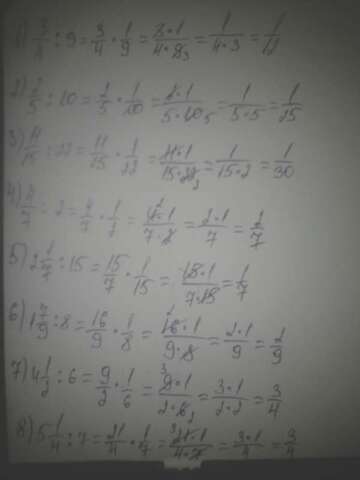 1) 3/4 : 9 = 3/4 · 1/9 = 3·1/4·9 3 = 1/4·3 = 1/12
2) 2/5 : 10 = 2/5 · 1/10 = 2·1/5·10 5 = 1/5·5 = 1/25
3) 11/15 : 22 = 11/15 · 1/22 = 11·1/15·22 2 = 1/15·2 = 1/30
4) 4/7 : 2 = 4/7 · 1/2 = 4 2·1/7·2 = 2·1/7 = 2/7
5) 2 1/7 : 15 = 15/7 · 1/15 = 15·1/7·15 = 1/7
6) 1 7/9 : 8 = 16/9 · 1/8 = 16 2·1/9·8 = 2·1/9 = 2/9
7) 4 1/2 : 6 = 9/2 · 1/6 = 9 3·1/2·6 2 = 3·1/2·2 = 3/4
8) 5 1/4 : 7 = 21/4 · 1/7 = 21 3·1/4·7 = 3·1/4 = 3/4